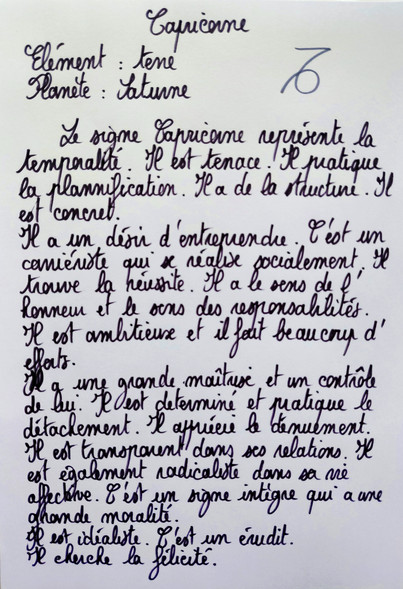 Capricorne
Elément : terre
Planète : Saturne
Le signe Capricorne représente la
temporalité. Il est tenace. Il pratique
la plannification. Il a de la structure. Il
est concret.
Il a un désir d'entreprendre. C'est un
carriériste qui se réalise socialement. Il
trouve la réussite. Il a le sens de l'
honneur et le sens des responsabilités.
Il est ambitieuse et il fait beaucoup d'
efforts.
Il a une grande maîtrise et un contrôle
de lui. Il est determiné et pratique le
détachement. Il apprécie le dénuement.
Il est transparent dans ses relations. Il
est également radicaliste dans sa vie
affective. C'est un signe intègre qui a une
grande moralité.
Il est idéaliste. C'est un érudit.
Il cherche la félicité.